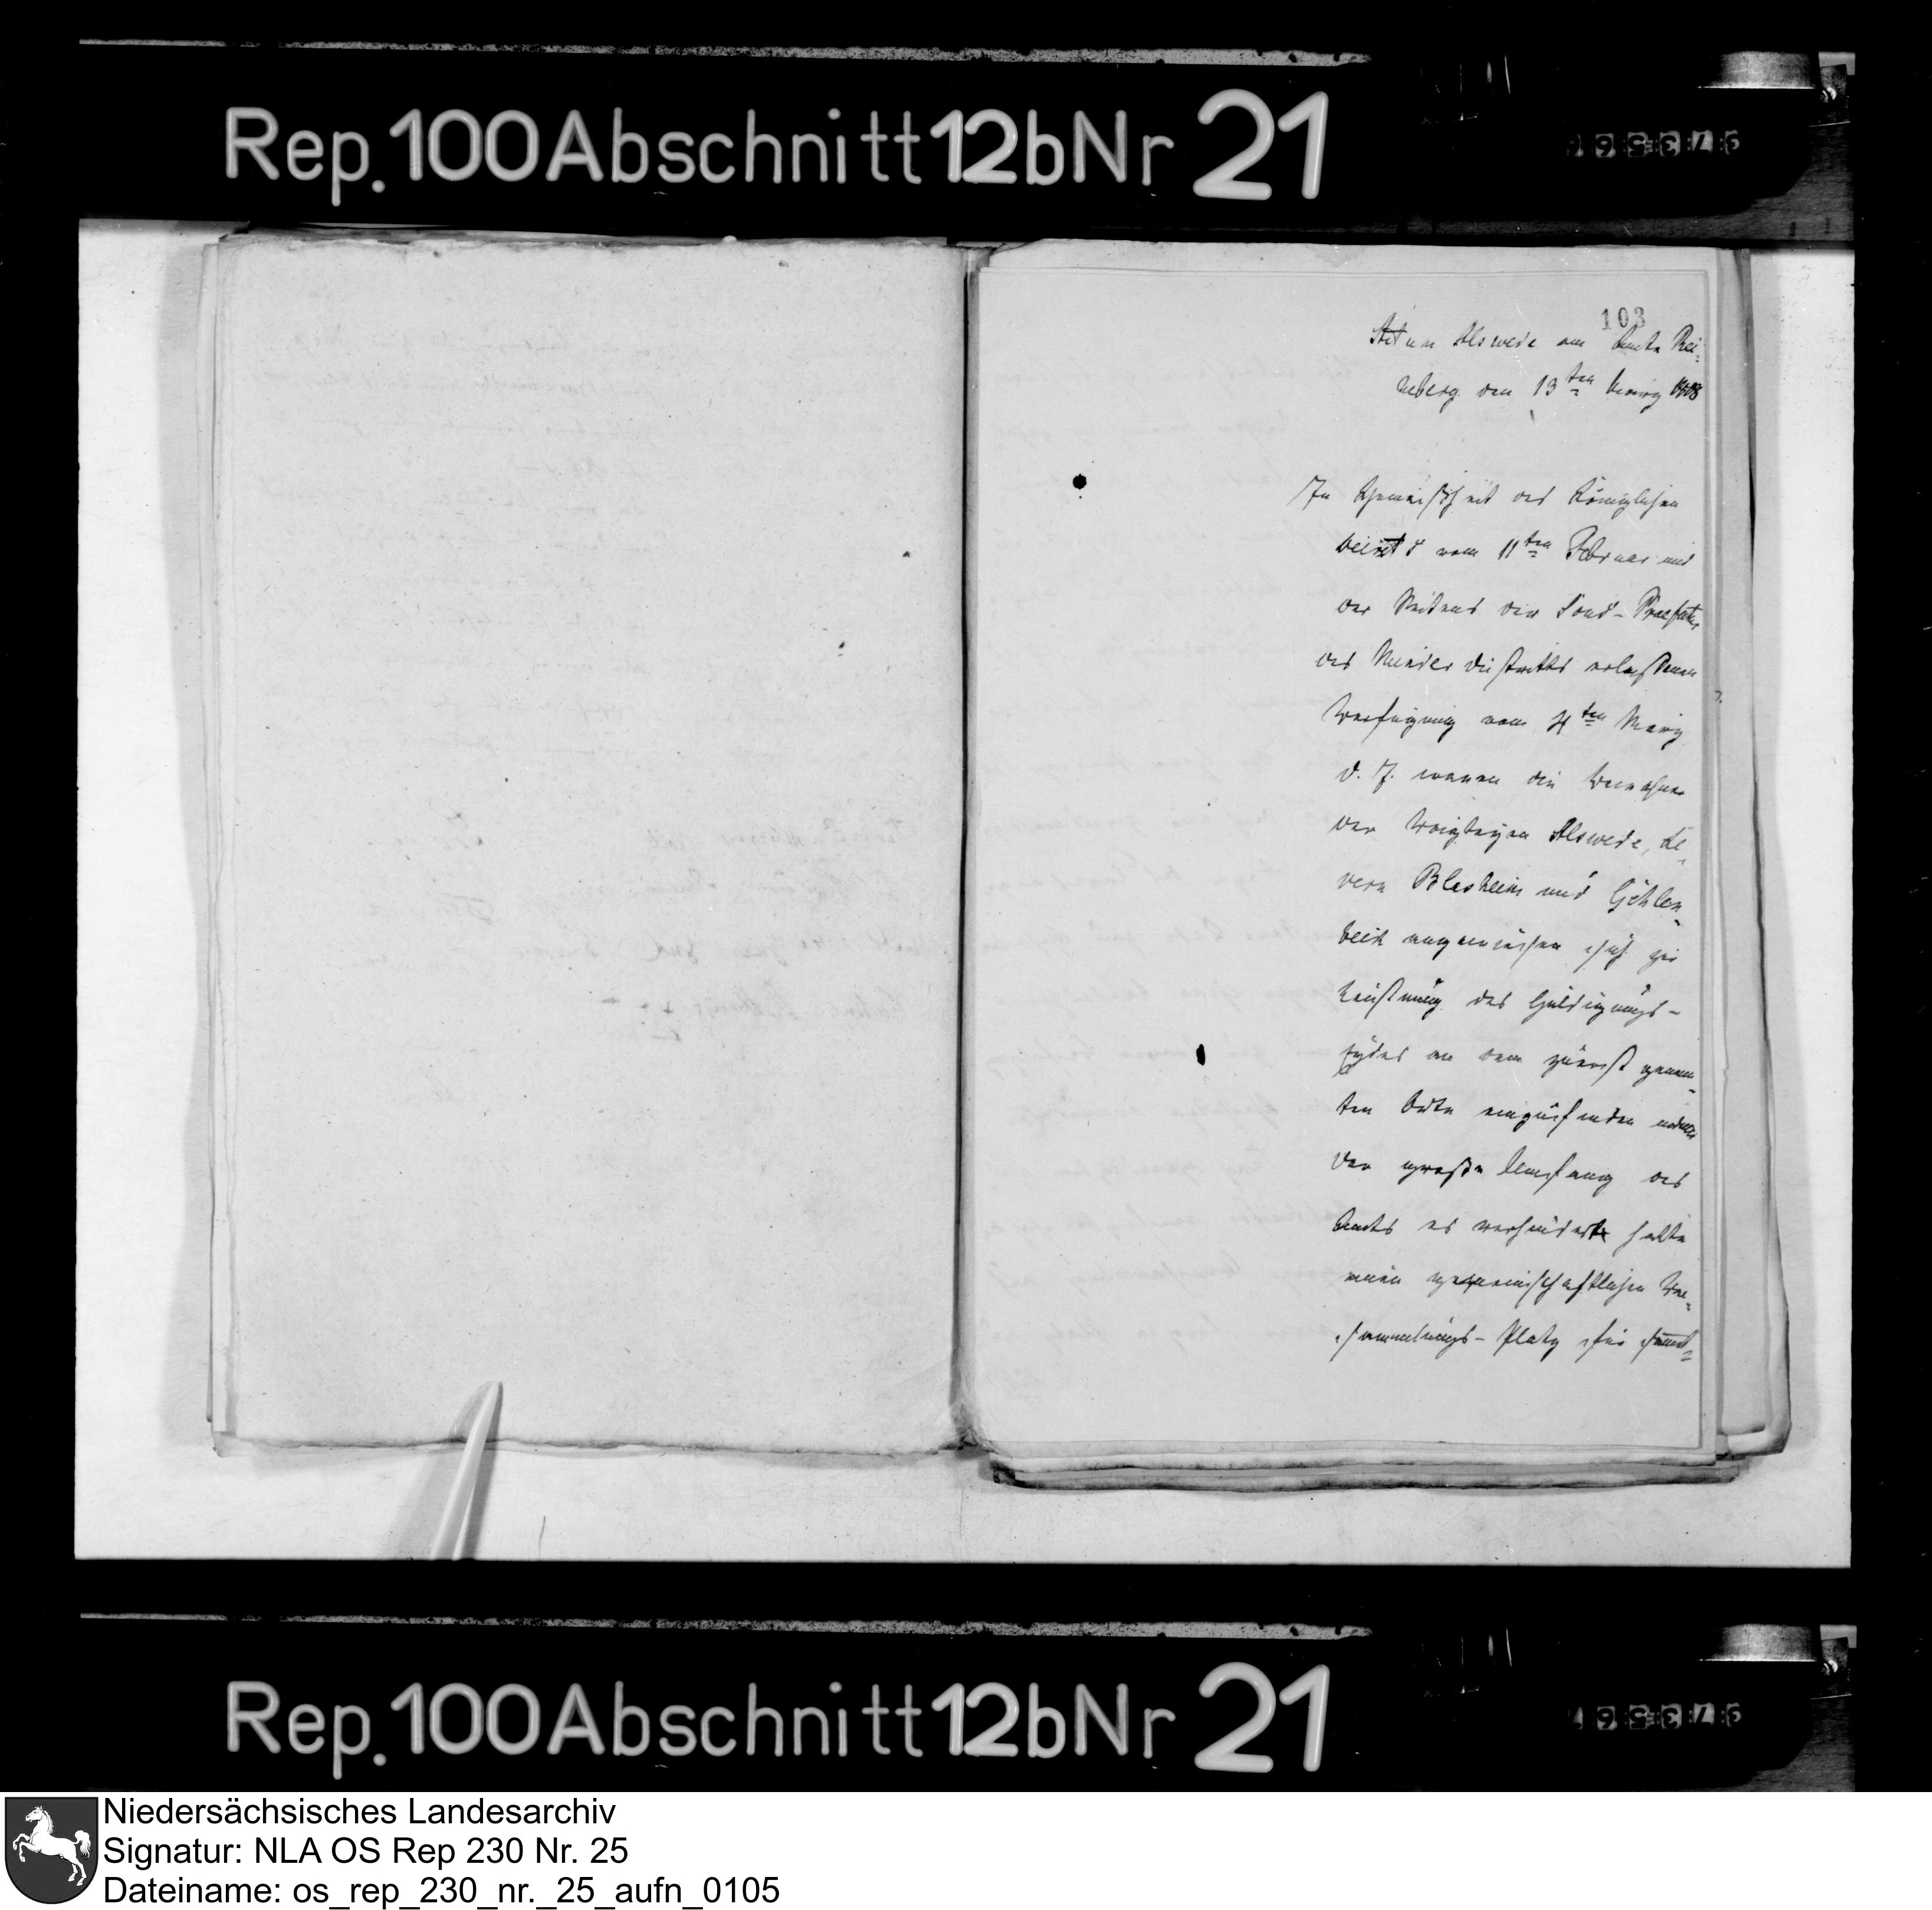 Rep. 100 Abschnitt 12b Nr 21
103
Actum Alswede am Amte Rei-
neberg den 13ten Maerz 1808
In Gemäsheit des Königlichen
decrets vom 11ten Februar und
der Seitens der Sous-Praefectur
des Minder districtts erlassenen
Verfügung vom 4ten Maerz
d. J. waren die Bewohner
der Voigteyen Alswede, Le-
vern Blasheim und Gehlen-
beck angewiesen sich zur
Leistung des Huldigungs-
Eydes an dem zuerst genan-
ten Orte einzufinden indem
der große Umfang des
Amts es verhindert hatte
einen gemeinschaftlichen Ver-
sammlungs-Platz für sämt-
Rep. 100 Abschnitt 12b Nr 21
Niedersächsisches Landesarchiv
Signatur: NLA OS Rep 230 Nr. 25
Dateiname: os_rep_230_nr._25_aufn_0105